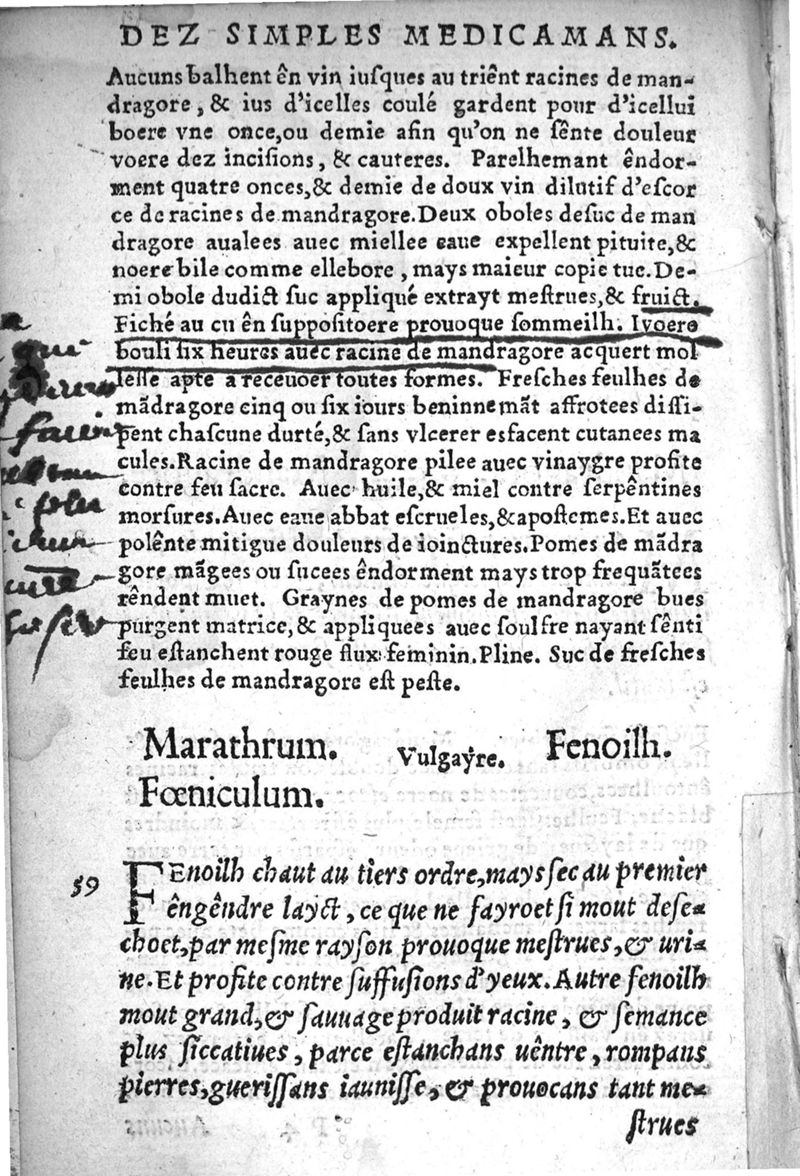 DEZ SIMPLES MEDICAMANS.
Aucuns balhent ên vin iuſques au triênt racines de man-
dragore, & ius d'icelles coulé gardent pour d'icellui
boere vne once, ou demie afin qu'on ne ſênte douleur
voere dez inciſions, & cauteres. Parelhemant êndor-
ment quatre onces, & demie de doux vin dilutif d'eſcor
ce de racines de mandragore. Deux oboles de ſuc de man
dragore aualees auec miellee eaue expellent pituite, &
noere bile comme ellebore, mays maieur copie tue. De-
mi obole dudict ſuc appliqué extrayt meſtrues, & fruict.
Fiché au cu ên ſuppoſitoere prouoque ſommeilh. Ivoere
bouli ſix heures auec racine de mandragore acquert mol
leſſe apte a receuoer toutes formes. Freſches feulhes de
mãdragore cinq ou ſix iours beninnemãt affrotees diſſi-
pent chaſcune durté, & ſans vlcerer esfacent cutanees ma
cules. Racine de mandragore pilee auec vinaygre profite
contre feu ſacre. Auec huile, & miel contre ſerpêntines
morſures. Auec eaue abbat eſcrueles, & apoſtemes. Et auec
polênte mitigue douleurs de ioinctures. Pomes de mãdra
gore mãgees ou ſucees êndorment mays trop frequãtees
rêndent muet. Graynes de pomes de mandragore bues
purgent matrice, & appliquees auec ſoulfre nayant ſênti
feu eſtanchent rouge flux feminin. Pline. Suc de freſches
feulhes de mandragore eſt peſte.
Marathrum. Vulgayre. Fenoilh.
Fœniculum.
59 FEnoilh chaut au tiers ordre, mays ſec au premier
êngêndre layct, ce que ne fayroet ſi mout deſe-
choet, par meſme rayſon prouoque meſtrues, & uri-
ne. Et profite contre ſuffuſions d'yeux. Autre fenoilh
mout grand, & ſauuage produit racine, & ſemance
plus ſiccatiues, parce eſtanchans uêntre, rompans
pierres, gueriſſans iauniſſe, & prouocans tant me-
ſtrues